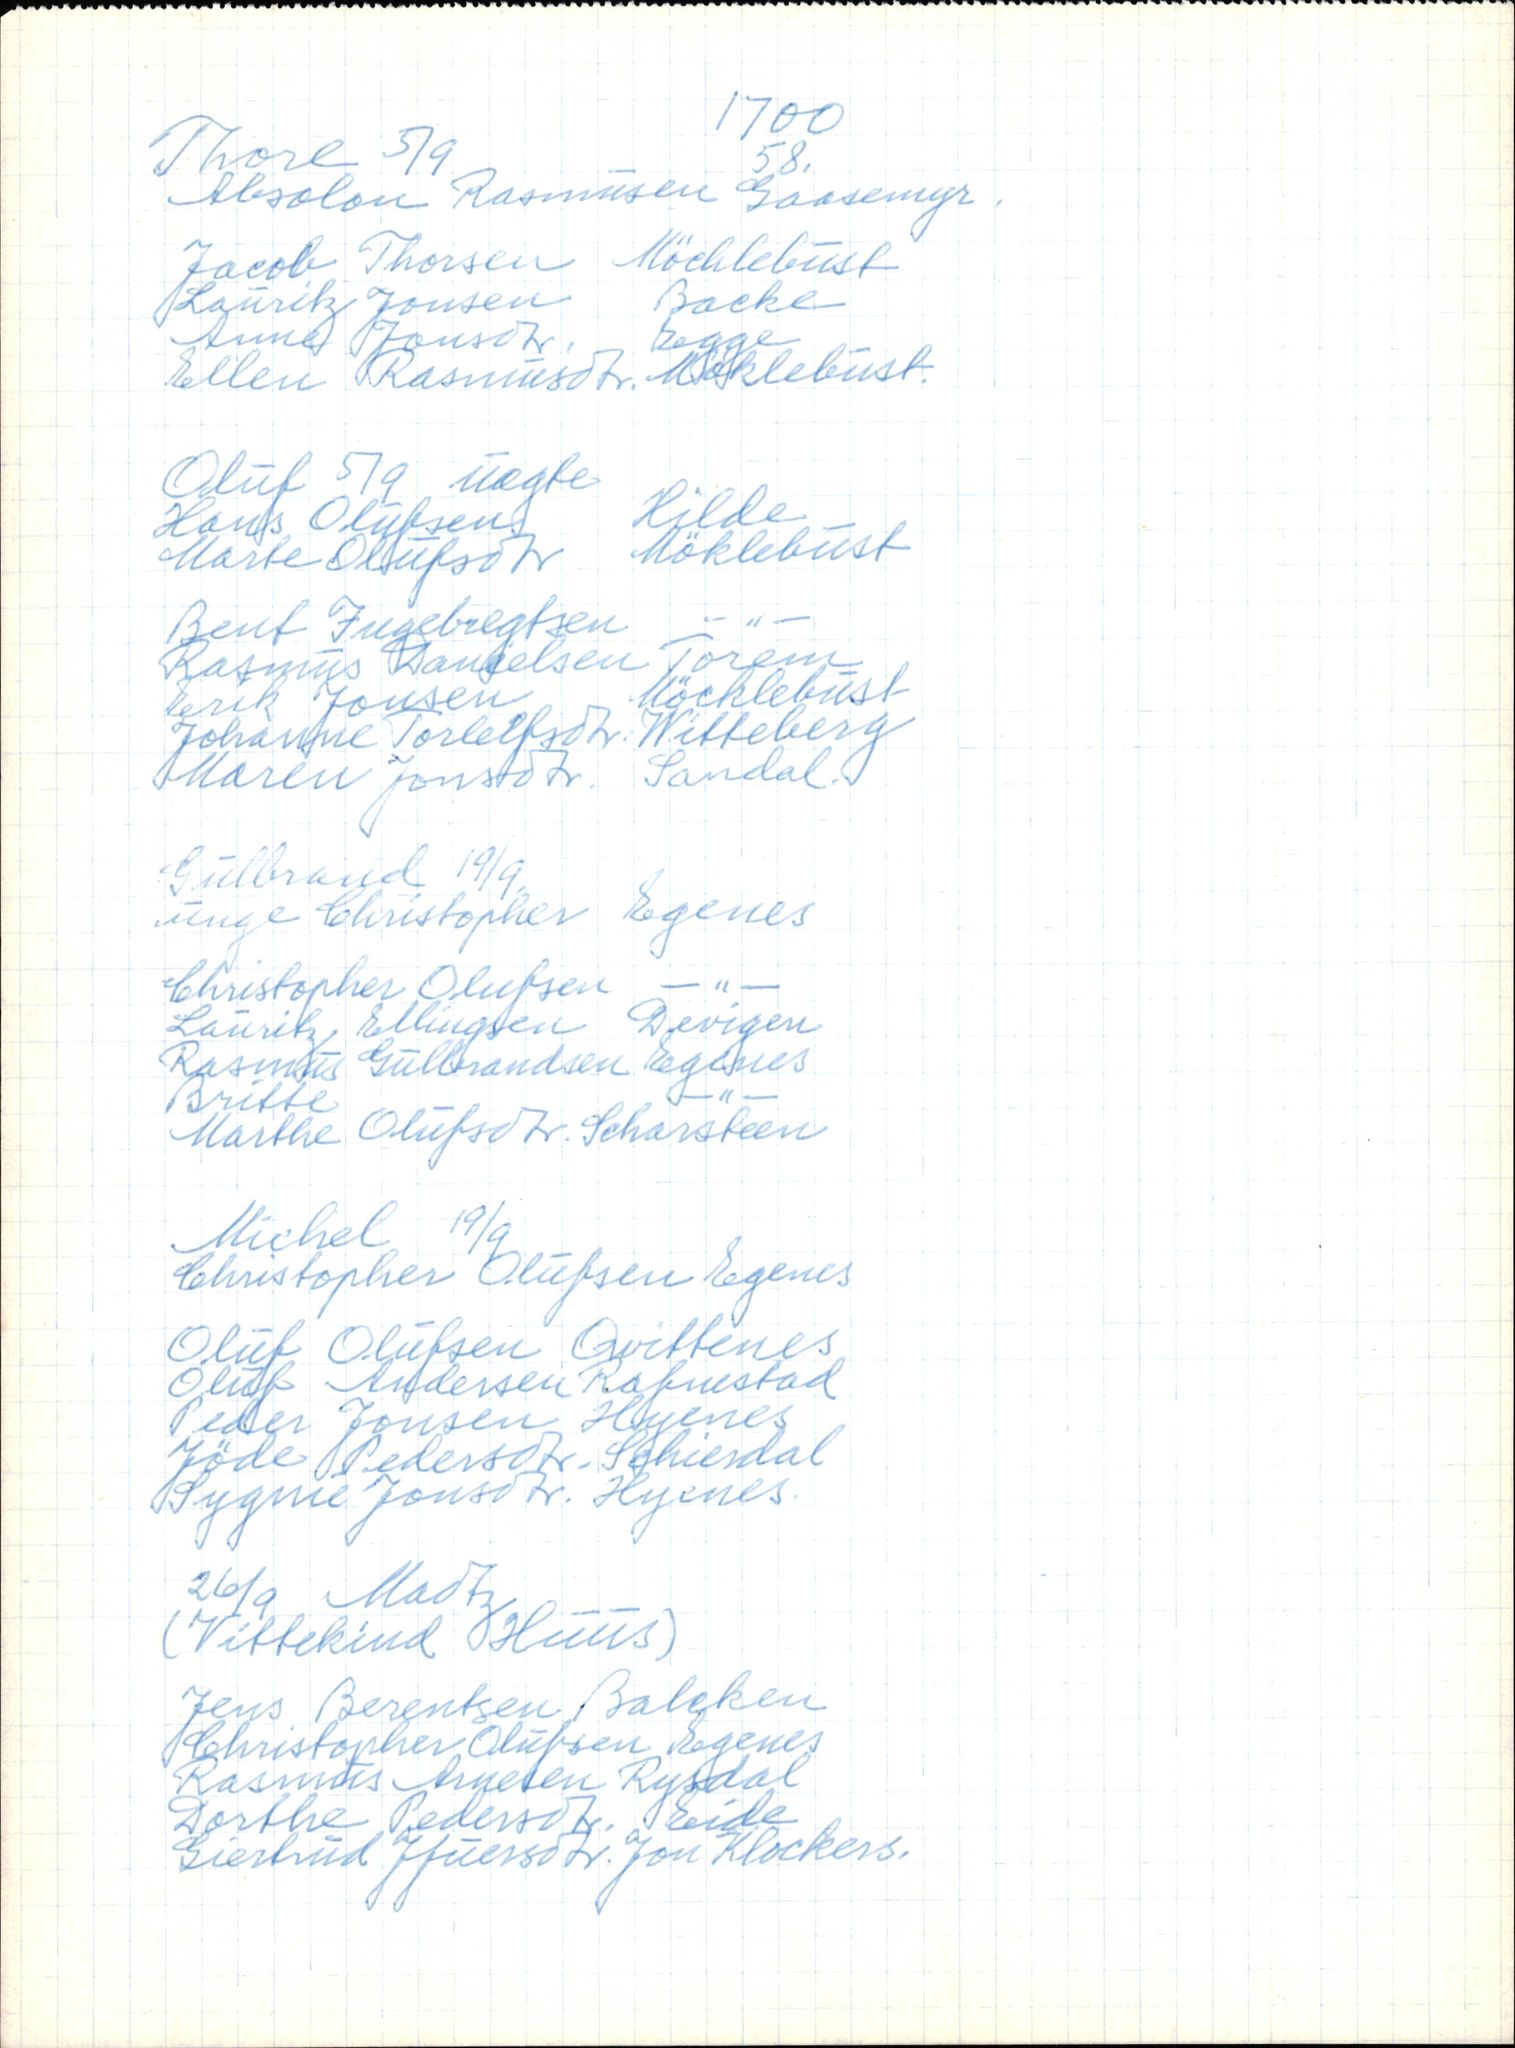 1700
58.
Thore 5/9
Absolon Rasmusen Gaasemyr.
Jacob Thorsen Möchlebust
Lauritz Jonsen Backe
Anne Jonsdtr. Egge
Ellen Rasmusdtr. Möklebust.
Oluf 5/9 uægte
Hans Olufsen Hilde
Marte Olufsdtr Möklebust
Bent Ingebregtsen — " —
Rasmus Danielsen Torem
Erik Jonsen Möcklebust
Johanne Torleifsdtr. Witteberg
Maren Jonsdtr. Sandal.
Gulbrand 19/9.
unge Christopher Egenes
Christopher Olufsen — " —
Lauritz Ellingsen Devigen
Rasmus Gulbrandsen Egenes
Britte — " —
Marthe Olufsdtr. Scharsteen
Michel 19/9
Christopher Olufsen Egenes
Oluf Olufsen Qvittenes
Oluf Andersen Rafnestad
Peder Jonsen Hyenes
Jöde Pedersdtr. Schierdal
Sygnie Jonsdtr. Hyenes.
26/9 Madtz
(Vittekind Huus)
Jens Berentsen Balcken
Christopher Olufsen Egenes
Rasmus Arnesen Rysdal
Dorthe Pedersdtr. Eide
Giertrud Ifuersdtr. Jon Klockers.